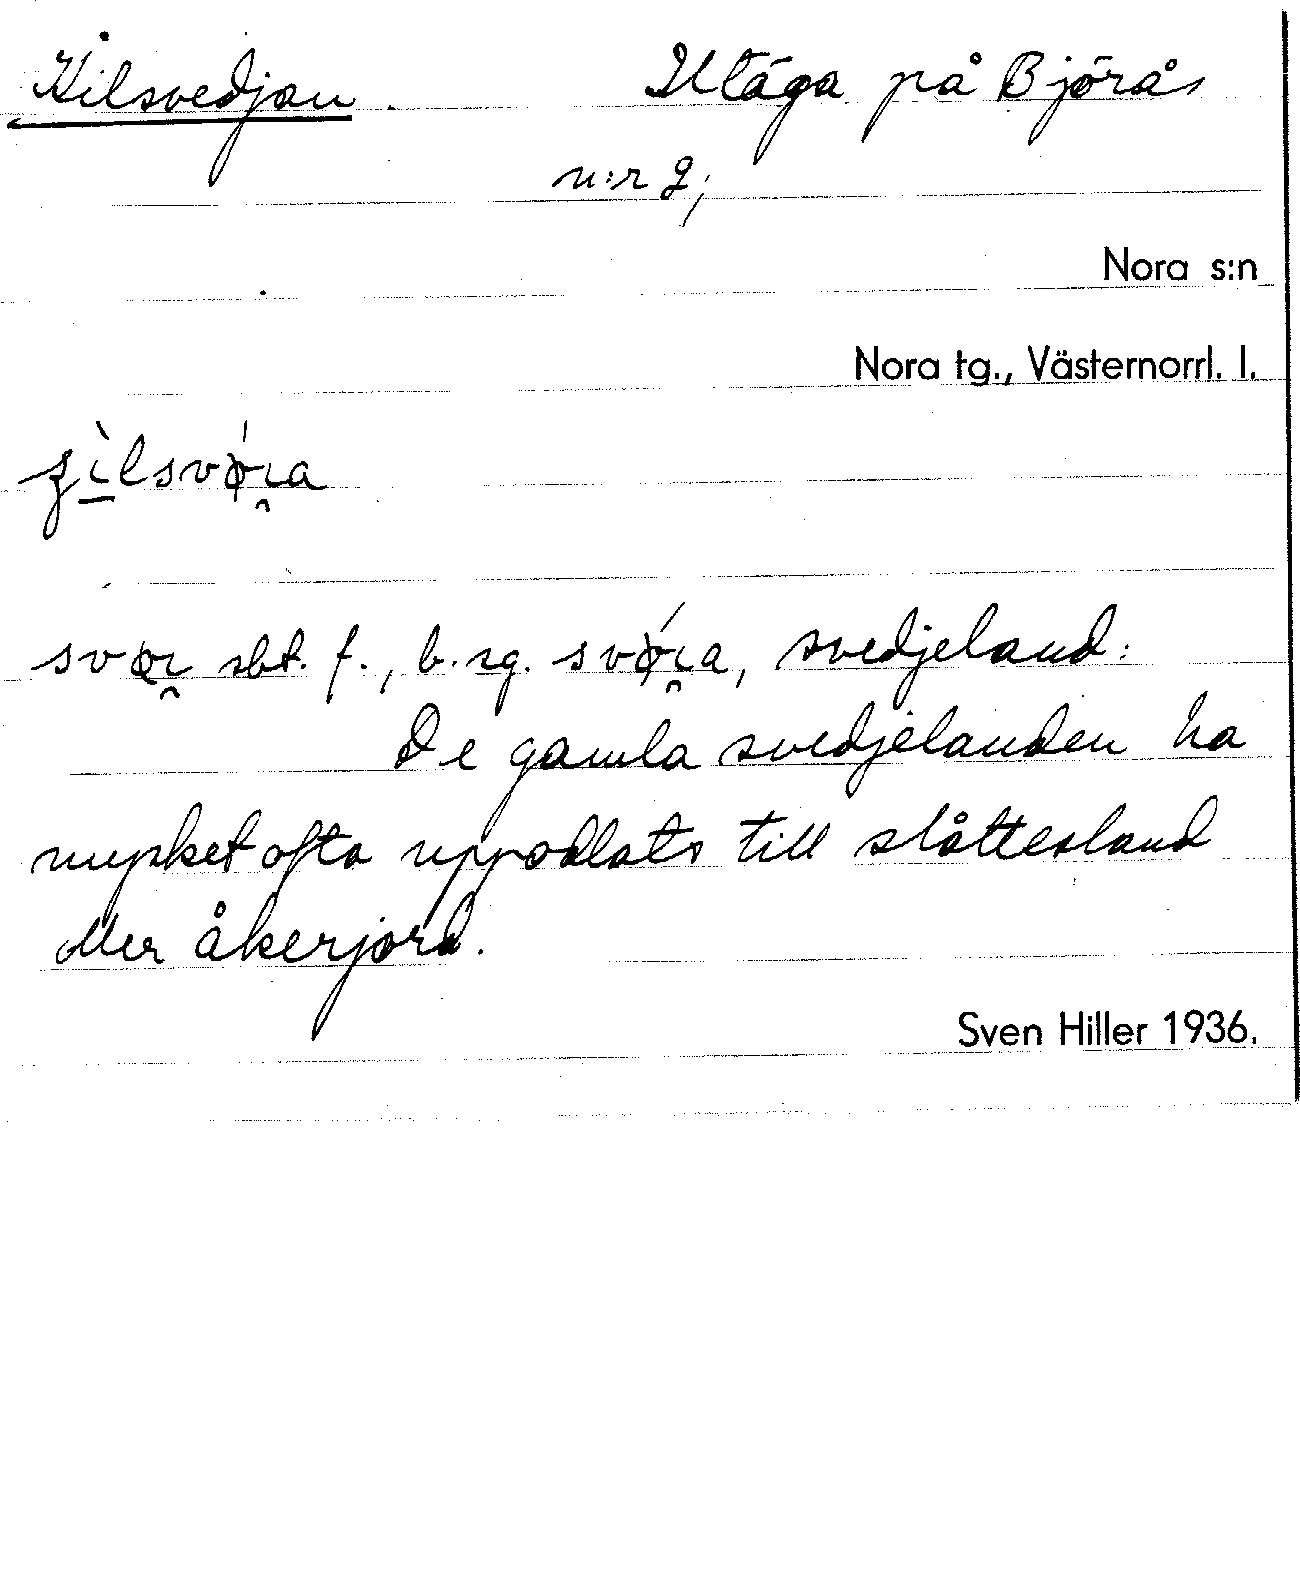 Kilsvedjan. Utäga på Björås
n:r 2;
Nora s:n
Nora tg., Västernorrl. l.
sbt. f., b. sg. svedjeland:
De gamla svedjelanden ha
mycket ofta uppodlats till slåttesland
eller åkerjord.
Sven Hiller 1936.